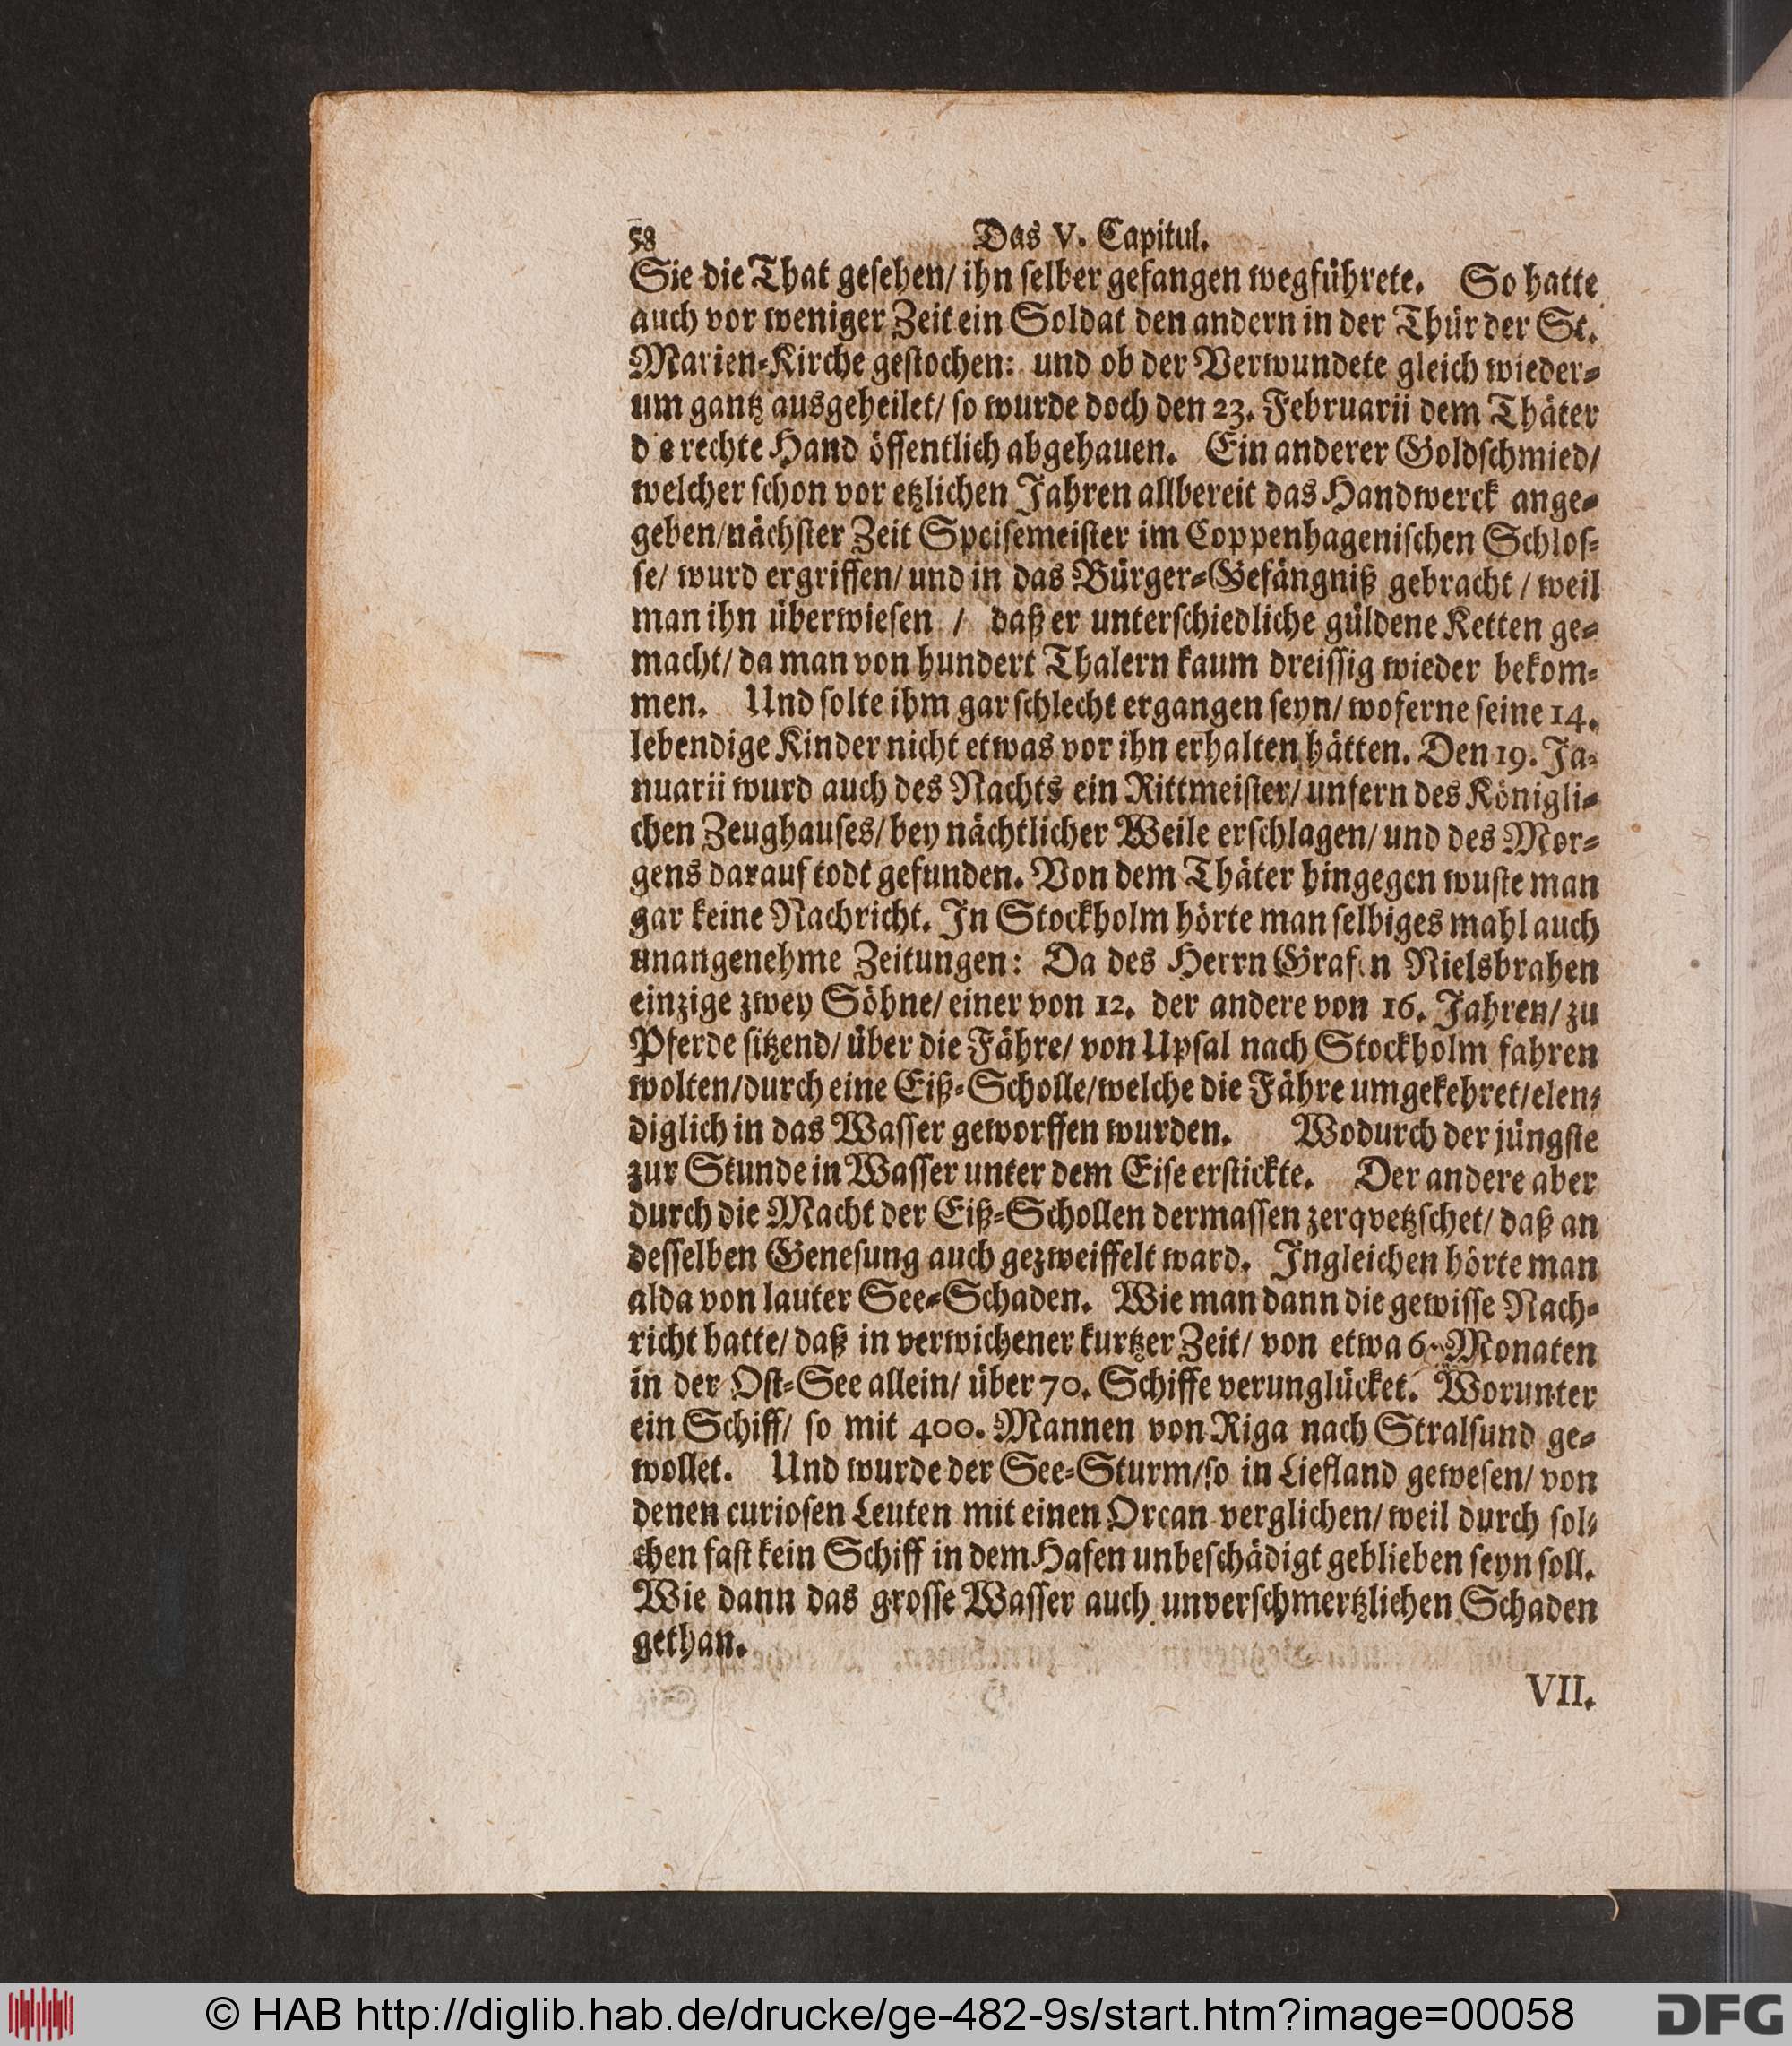 58 Das V. Capitul.
Sie die That geſehen/ ihn ſelber gefangen wegführete. So hatte
auch vor weniger Zeit ein Soldat den andern in der Thür der St.
Marien-Kirche geſtochen: und ob der Verwundete gleich wieder-
um gantz ausgeheilet/ ſo wurde doch den 23. Februarii dem Thäter
die rechte Hand öffentlich abgehauen. Ein anderer Goldſchmied/
welcher ſchon vor etzlichen Jahren allbereit das Handwerck ange-
geben/nächſter Zeit Speiſemeiſter im Coppenhageniſchen Schloſ-
ſe/ wurd ergriffen/ und in das Bürger-Gefängniß gebracht / weil
man ihn überwieſen / daß er unterſchiedliche güldene Ketten ge-
macht/ da man von hundert Thalern kaum dreiſſig wieder bekom-
men. Und ſolte ihm gar ſchlecht ergangen ſeyn/ woferne ſeine 14.
lebendige Kinder nicht etwas vor ihn erhalten hätten. Den 19. Ja-
nuarii wurd auch des Nachts ein Rittmeiſter/ unfern des Königli-
chen Zeughauſes/ bey nächtlicher Weile erſchlagen/ und des Mor-
gens darauf todt gefunden. Von dem Thäter hingegen wuſte man
gar keine Nachricht. In Stockholm hörte man ſelbiges mahl auch
unangenehme Zeitungen: Da des Herrn Grafen Nielsbrahen
einzige zwey Söhne/ einer von 12. der andere von 16. Jahren/ zu
Pferde ſitzend/ über die Fähre/ von Upſal nach Stockholm fahren
wolten/durch eine Eiß-Scholle/welche die Fähre umgekehret/elen-
diglich in das Waſſer geworffen wurden. Wodurch der jüngſte
zur Stunde in Waſſer unter dem Eiſe erſtickte. Der andere aber
durch die Macht der Eiß-Schollen dermaſſen zerqvetzſchet/ daß an
deſſelben Geneſung auch gezweiffelt ward. Ingleichen hörte man
alda von lauter See-Schaden. Wie man dann die gewiſſe Nach-
richt hatte/ daß in verwichener kurtzer Zeit/ von etwa 6. Monaten
in der Oſt-See allein/ über 70. Schiffe verunglücket. Worunter
ein Schiff/ ſo mit 400. Mannen von Riga nach Stralſund ge-
wollet. Und wurde der See-Sturm/ſo in Liefland geweſen/ von
denen curioſen Leuten mit einen Orcan verglichen/ weil durch ſol-
chen faſt kein Schiff in dem Hafen unbeſchädigt geblieben ſeyn ſoll.
Wie dann das groſſe Waſſer auch unverſchmertzlichen Schaden
gethan.
VII.
© HAB http://diglib.hab.de/drucke/ge-482-9s/start.htm?image=00058
DFG